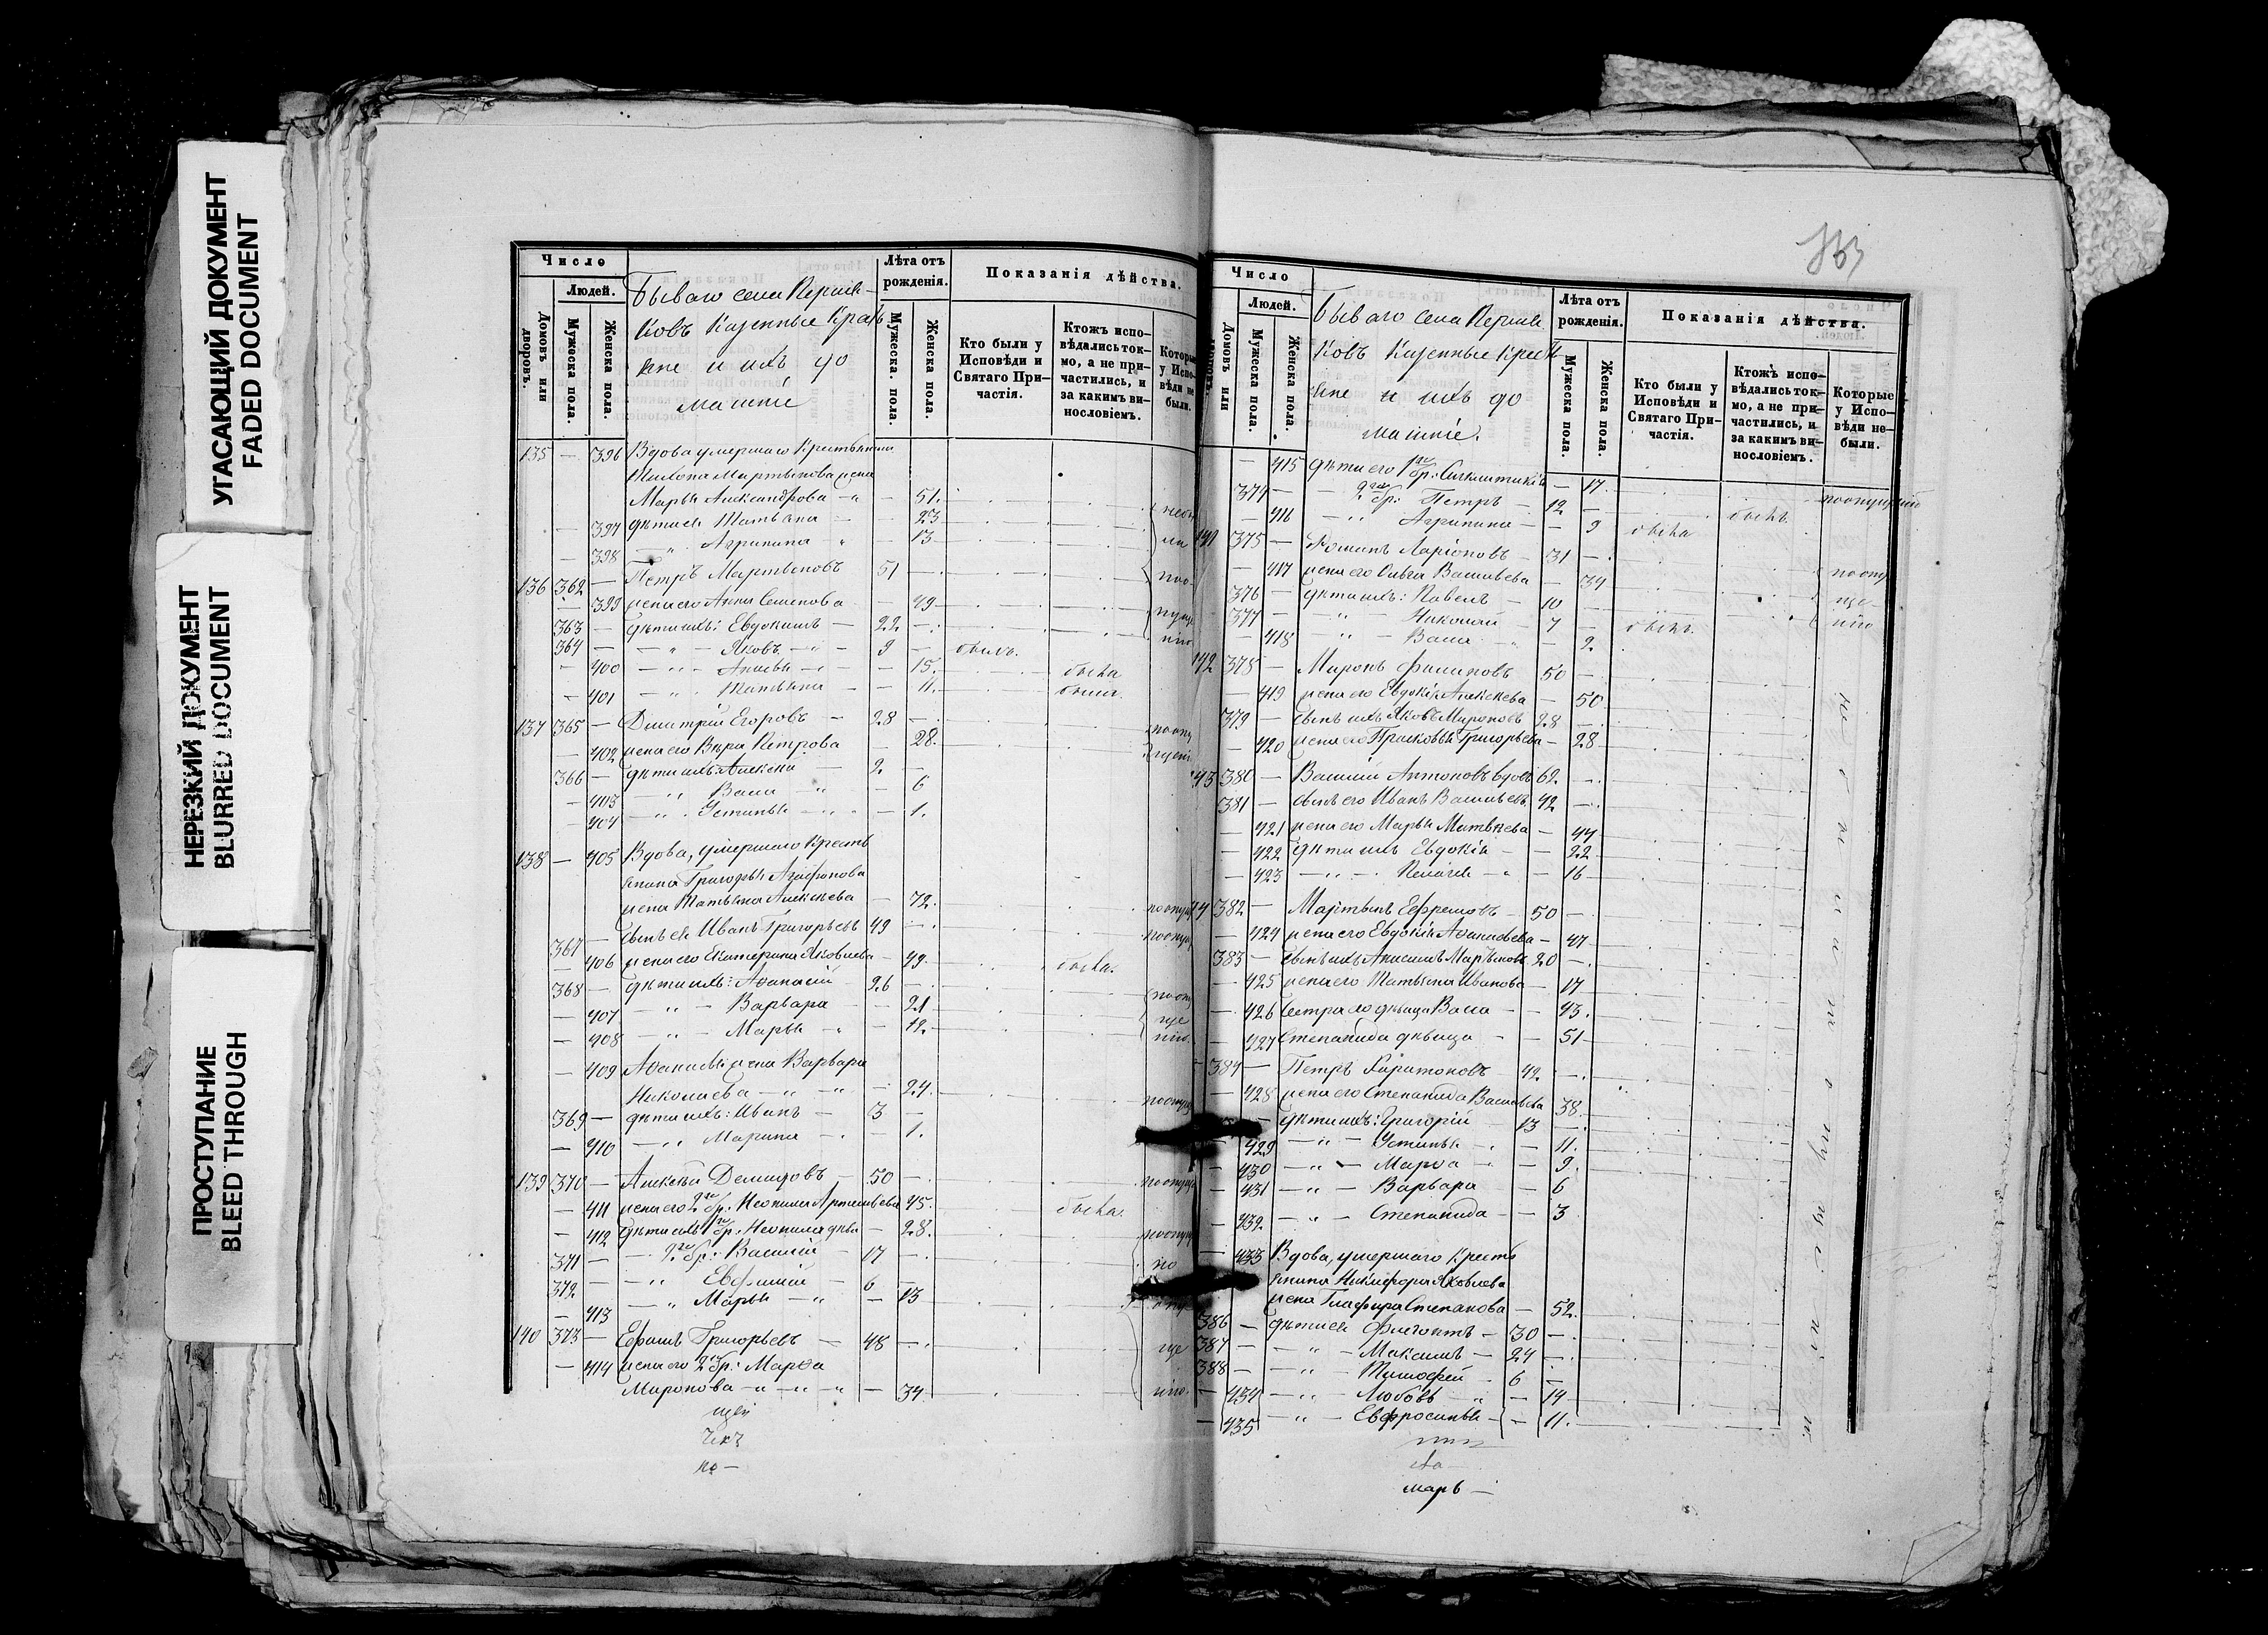 УГАСАЮЩИЙ ДОКУМЕНТ
FADED DOCUMENT
НЕРЕЗКИЙ ДОКУМЕНТ
BLURRED DOCUMENT
ПРОСТУПАНИЕ
BLEED THROUGH
Число
Людей.
Домовъ или дворовъ.
Мужеска пола.
Женска пола.
Лѣта отъ рожденія.
Мужеска. пола.
Женска пола.
Показанія дѣйства.
Кто были у Исповѣди и Святаго Причастія.
Ктожъ исповѣдались токмо, а не причастились, и за какимъ винословіемъ.
Которые у Исповѣди не были.
Бываго села
ковъ Казенные Крестъ
яне и ихъ до
машніе
135 — 396 Вдова умершаго Крестьянина
Мартынова жена
Марья Александрова — 51.
— 397 дѣти ея Татьяна — 23
— 398 — " Агрипина — 13
136 362 — Петръ Мартыновъ 51 —
— 399 жена его Анна Семенова — 49
363 — дѣти ихъ: Евдокимъ — 22 —
364 — " — Яковъ — 9 — былъ.
— 400 — " — Анисья — 15. была
— 401 — " Татьяна — 11. была.
137 365 — Дмитрій Егоровъ — 28 —
— 402 жена его Вѣра Петрова — 28.
366 — дѣти ихъ Алексѣй — 2. —
— 403 — " Васса " — 6
— 404 — " Устинья — 1.
138 — 405 Вдова, умершаго Кресть
янина Григорья Агафонова
жена Татьяна Алексѣева — 72.
367 — сынъ ея Иванъ Григорьевъ 49 —
— 406 жена его Екатерина Яковлева — 49. была.
368 — дѣти ихъ: Аѳанасій 26 —
— 407 — " — Варвара — 21
— 408 — " — Марья — 12.
— 409 Аѳанасья жена Варвара
Николаева — " — " — 24.
369 — дѣти ихъ: Иванъ — 3 —
— 410 — " Марина — 1.
139 370 — Алексѣй Демидовъ — 50 —
— 411 жена его 2го бр: Неонила Артемьева 45. была.
— 412 дѣти ихъ 1го бр: Неонила дѣва — 28.
371 — 2го бр: Василій — 17 —
372 — " Евфимій — 6 —
— 413 — " Марья — " — 13
140 373 — Ефимъ Григорьевъ — 48 —
— 414 жена его 2го бр: Марѳа
Миронова — " — " — 34.
Число
Людей.
Домовъ или
Мужеска пола.
Женска пола.
Лѣта отъ рожденія.
Мужеска пола.
Женска пола.
Показанія дѣйства.
Кто были у Исповѣди и Святаго Причастія.
Ктожъ исповѣдались токмо, а не причастились, и за какимъ винословіемъ.
Которые у Исповѣди не были.
Бываго села
ковъ Казенные Кресть
яне и ихъ до
машніе.
— 415 дѣти его 1го бр: — 17.
374 — 2го бр: Петръ — 12 —
— 416 — " Агрипина — 9 была
141 375 — Романъ Ларіоновъ — 31 —
— 417 жена его Ольга Васильева — 34
376 — дѣти ихъ: Павелъ — 10 —
377 — " Николай — 7 —
— 418 — " — Васса — 2.
142 378 — Миронъ Филиповъ 50 —
— 419 жена его Евдокія Алексѣева — 50
379 — сынъ ихъ Яковъ Мироновъ 28 —
— 420 жена его Прасковья Григорьева — 28
143 380 — Василій Антоновъ вдовъ 62. —
381 — сынъ его Иванъ Васильевъ 42 —
— 421 жена его Марья Матвѣева — 44
— 422 дѣти ихъ Евдокія — 22
— 423 — " — Пелагея — " — 16
382 — Мартынъ Ефремовъ — 50 —
— 424 жена его Евдокія Аѳанасьева — 47
383 — сынъ ихъ Анисимъ Мартыновъ 20 —
— 425 жена его Татьяна Иванова — 17
— 426 сестра его дѣвица Васса — 43.
— 427 Степанида дѣвица — 51
384 — Петръ Харитоновъ — 42. —
— 428 жена его Степанида Васильева 38.
дѣти ихъ: Григорій — 13 —
— 429 — " — Устинья — 11.
— 430 — " — Марѳа — 9.
— 431 — " — Варвара — 6
— 432. — " — Степанида — 3
— 433 Вдова, умершаго Кресть
янина Никифора Яковлева
жена Глафира Степанова — 52.
386 — дѣти ея — 30 —
387 — " — Максимъ — 24 —
388 — " — Тимофей — 6 —
— 434 — " — Любовь — " — 14
— 435 — " — Евфросинья — 11.
марь —